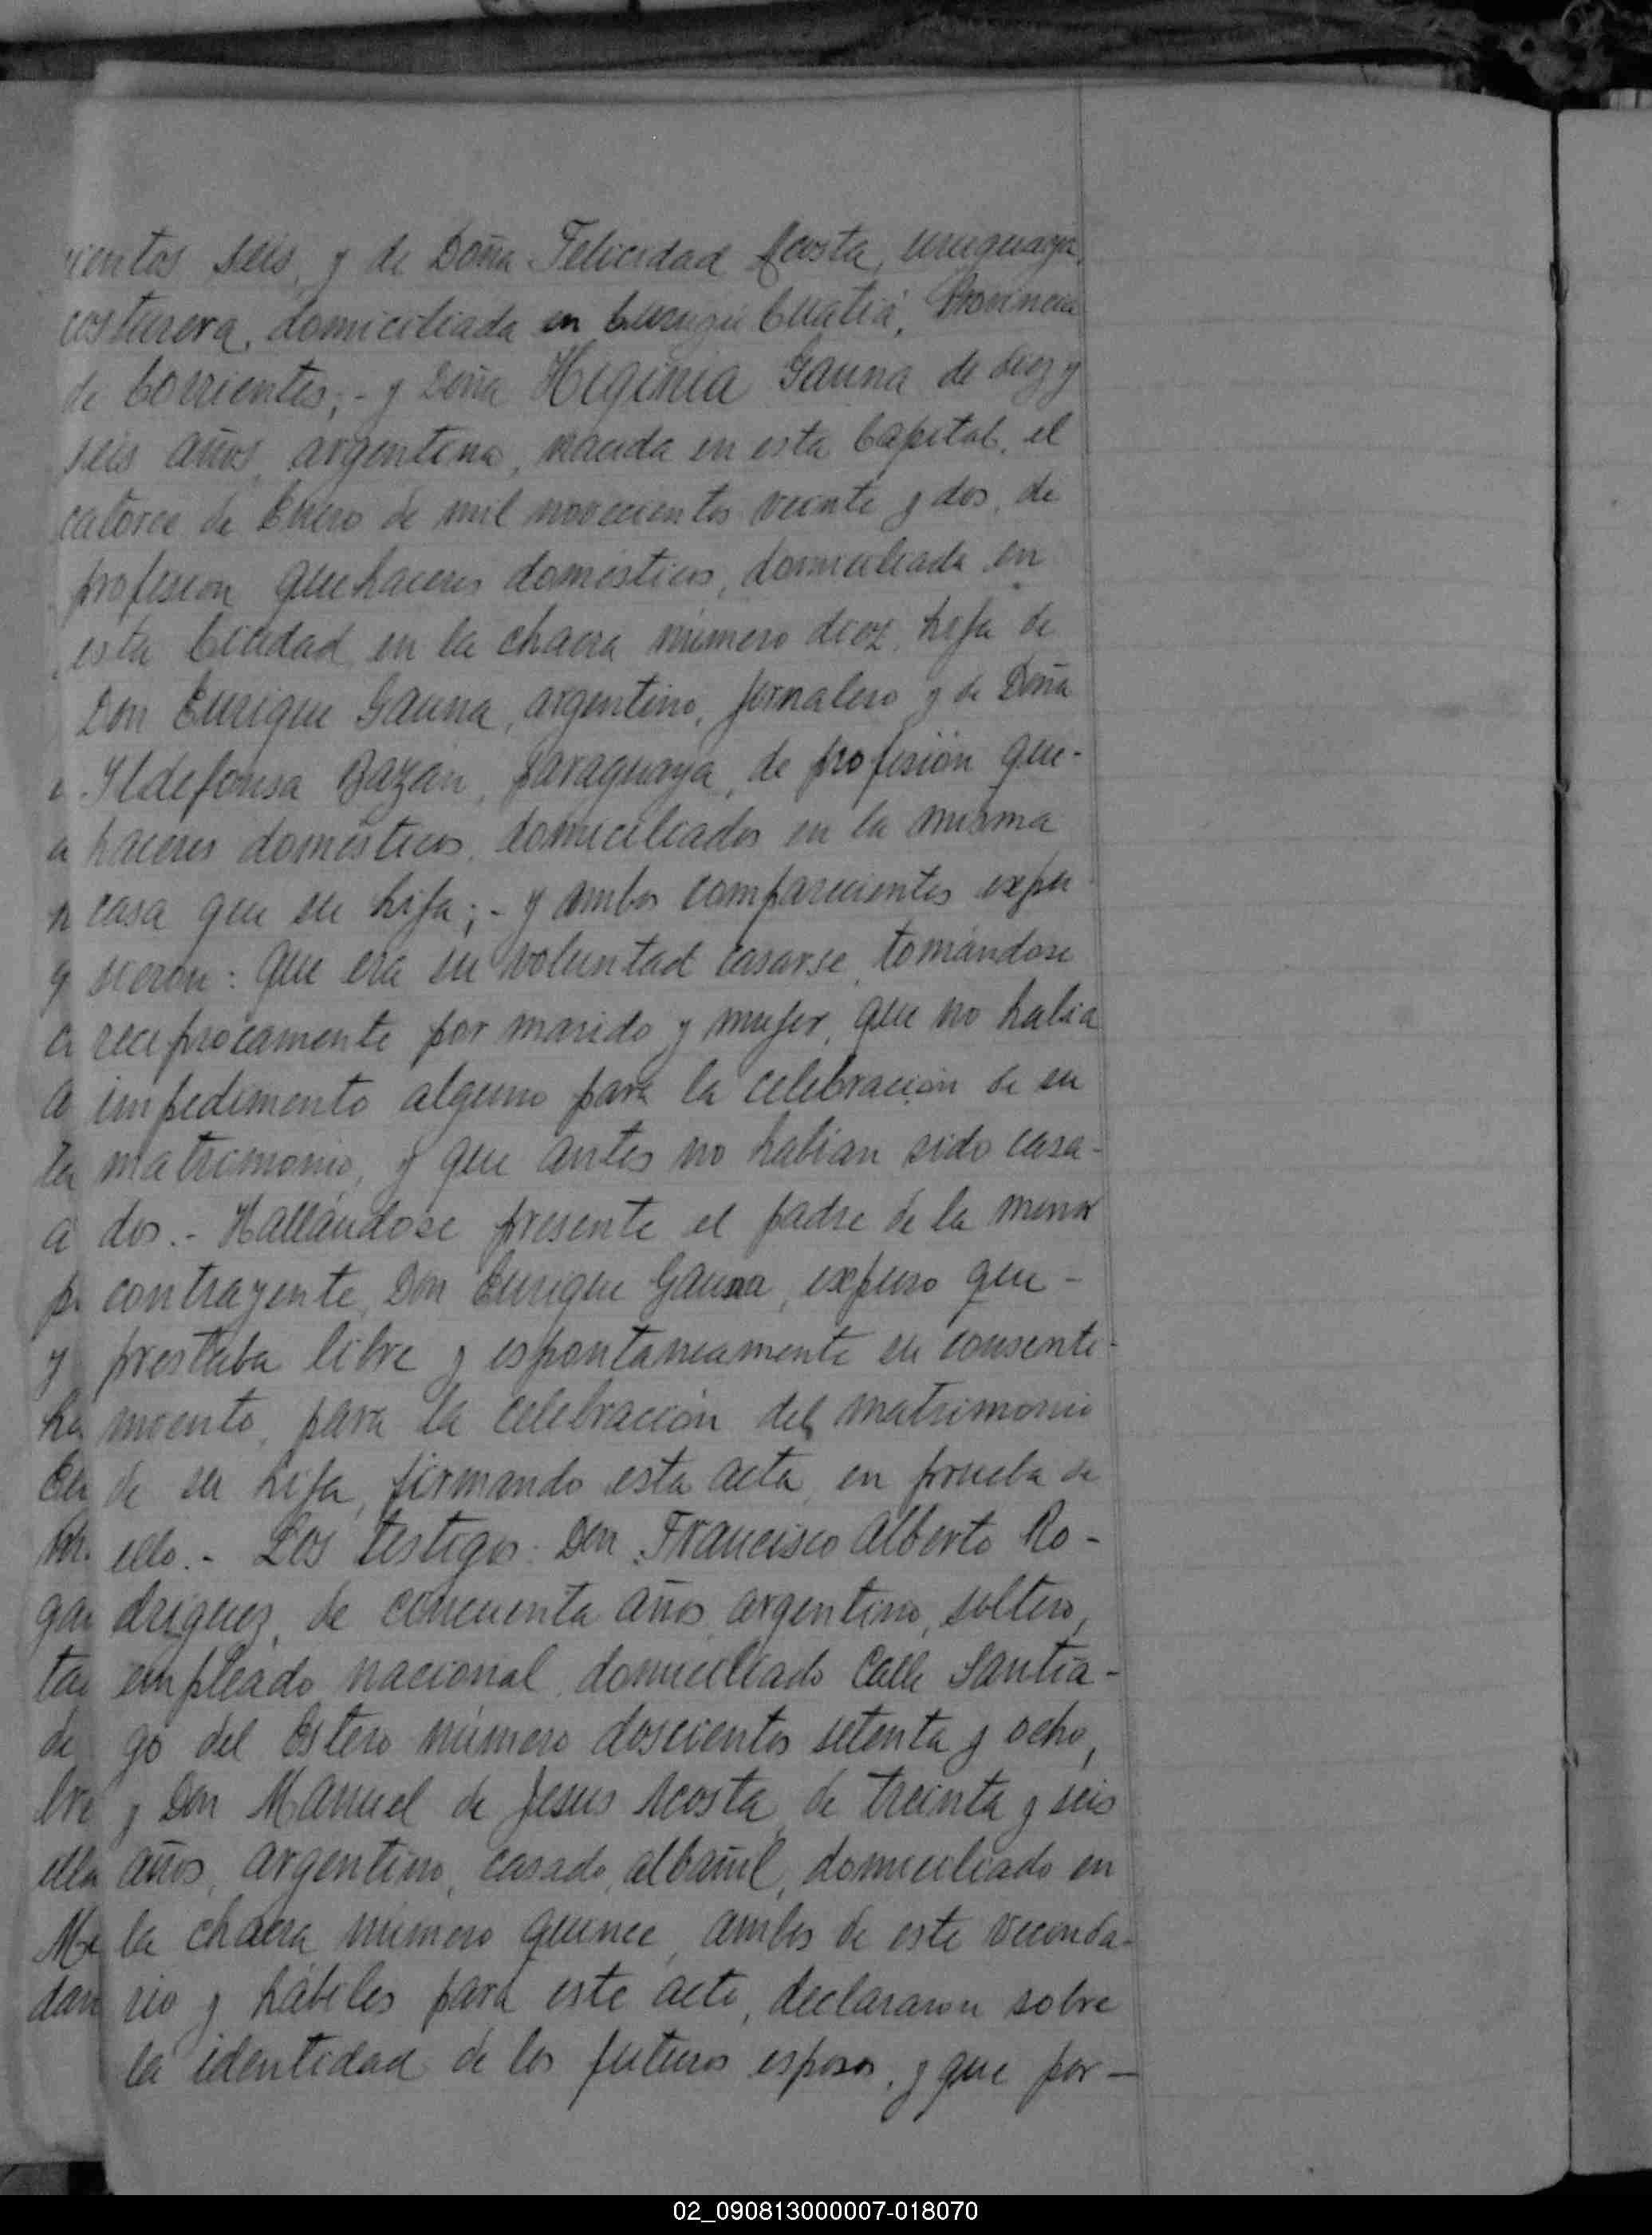 cientos seis, y de Doña Felicidad Acosta, uruguaya,
costurera, domiciliada en Curuzú Cuatiá, Provincia
de Corrientes; - y Doña Higinia Gauna de diez y
seis años, argentina, nacida en esta Capital, el
catorce de Enero de mil novecientos veinte y dos, de
profesion quehaceres domésticos, domiciliada en
esta Ciudad en la chacra número diez, hija de
Don Enrique Gauna, argentino, jornalero y de Doña
Ildefonsa Bazán, paraguaya, de profesión que-
a haceres domésticos, domiciliados en la misma
n casa que su hija; - y ambos comparecientes expu-
y sieron: que era su voluntad casarse, tomándose
a recíprocamente por marido y mujer, que no había
a impedimento alguno para la celebración de su
ta matrimonio, y que antes no habian sido casa-
a dos. - Hallándose presente el padre de la menor
p contrayente, Don Enrique Gauna, expuso que -
y prestaba libre y espontaneamente su consenti-
ha miento, para la celebración del matrimonio
En de su hija, firmando esta acta, en prueba de
ello. - Los testigos: Don Francisco Alberto Ro-
gan driguez, de cincuenta años, argentino, soltero,
tan empleado nacional, domiciliado Calle Santia-
de go del Estero número doscientos setenta y ocho,
bre y Don Manuel de Jesus Acosta, de treinta y seis
ella años, argentino, casado, albañil, domiciliado en
Me la chacra número quince, ambos de este vecinda-
dan rio y hábiles para este acto, declararon sobre
la identidad de los futuros esposos, y que por -
02_090813000007-018070